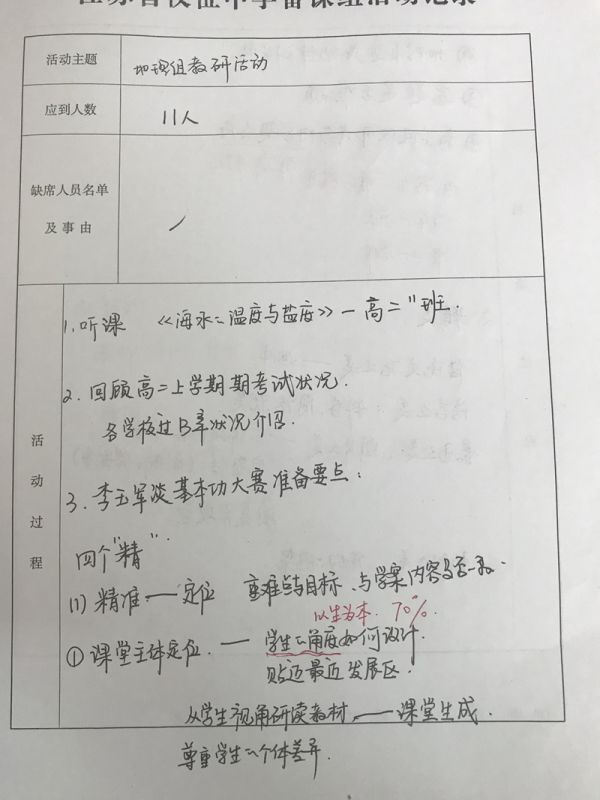 活动主题 地理组教研活动
应到人数 11人
缺席人员名单
及事由
活动过程
1.听课 《海水的温度与盐度》—高二11班.
2.回顾高二上学期期考试状况.
各学校过B率状况介绍.
3.李玉军谈基本功大赛准备要点:
四个"精".
(1)精准——定位 重难点与目标、与学案内容是否一致.
以生为本. 70%.
①课堂主体定位.——学生的角度如何设计.
贴近最近发展区.
从学生视角研读教材.——课堂生成.
尊重学生的个体差异.